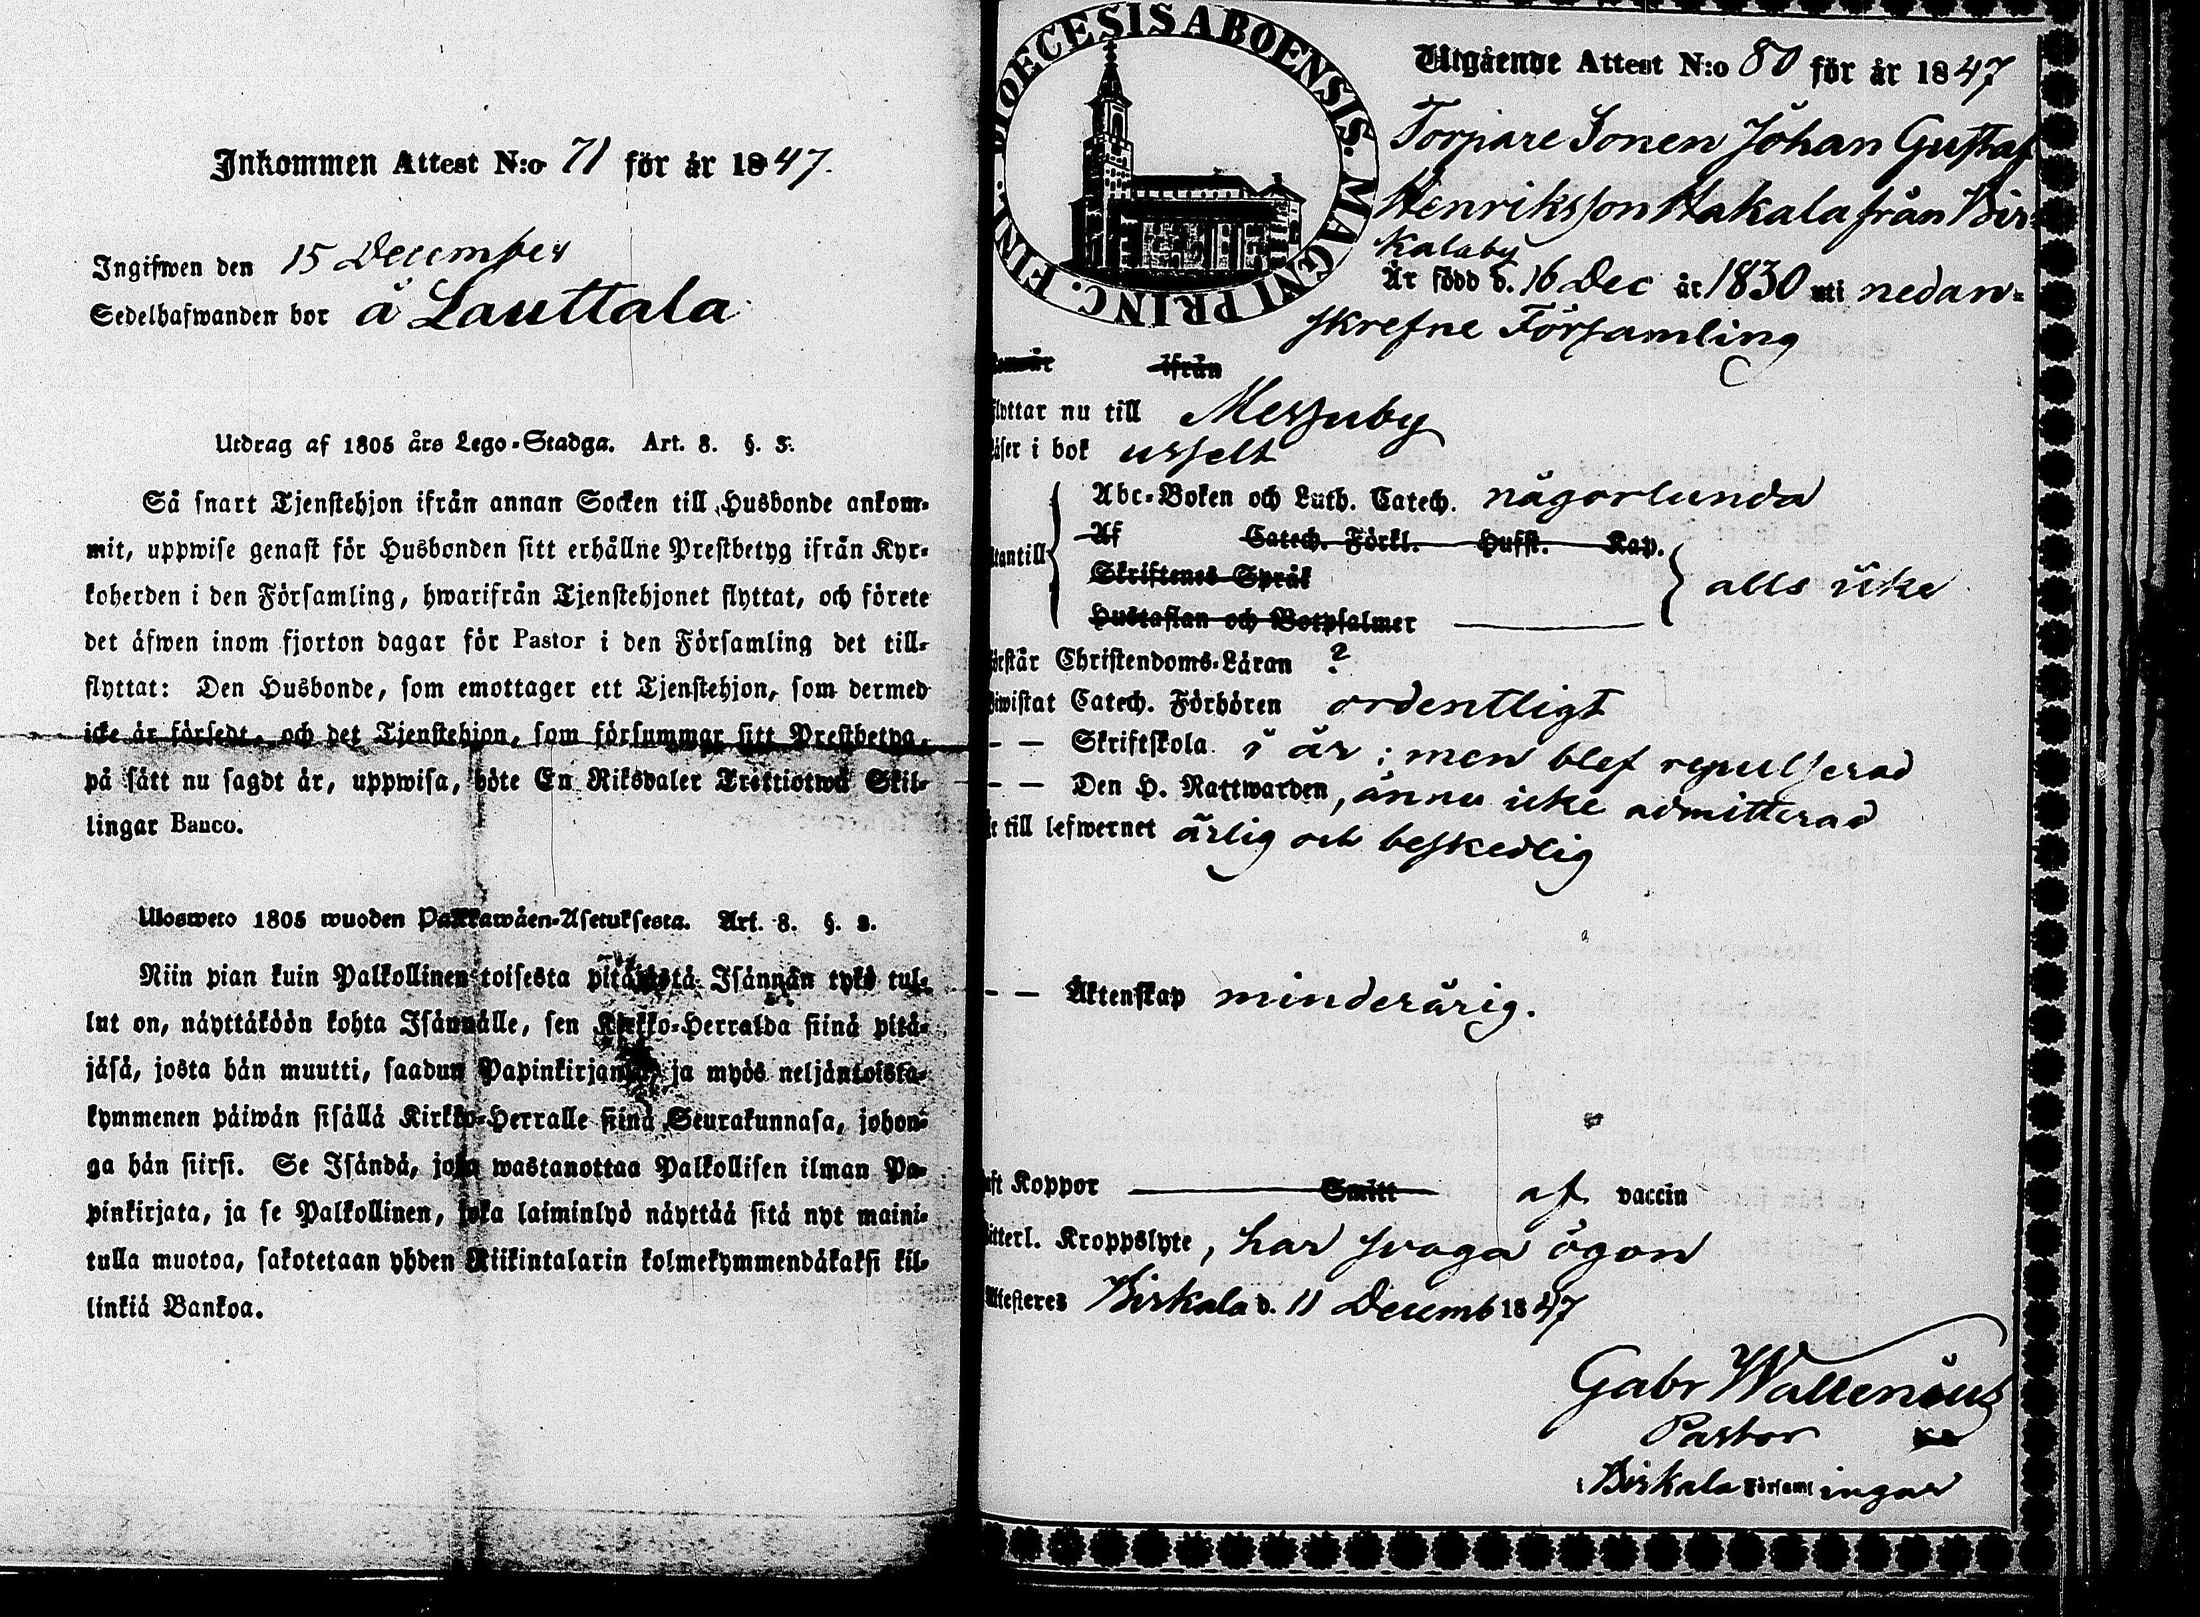 Inkommen Attest N:o 71 för år 1847.
Ingifwen den 15 December
Sedelhafwanden bor å Lauttala
Utdrag af 1805 års Lego-Stadga. Art. 8. §. 3.
Så snart Tjenstehjon ifrån annan Socken till Husbonde ankom-
mit, uppwise genast för Husbonden sitt erhållne Prestbetyg ifrån Kyr-
koherden i den Församling, hwarifrån Tjenstehjonet flyttat, och förete
det äfwen inom fjorton dagar för Pastor i den Församling det till-
flyttat: Den Husbonde, som emottager ett Tjenstehjon, som dermed
icke är försedt, och det Tjenstehjon, som försummar sitt Prestbetyg,
på sätt nu sagdt är, uppwisa, böte En Riksdaler Trettiotwå Skil-
lingar Banco.
Ulosweto 1805 wuoden Palkkawäen-Asetuksesta. Art. 8. §. 3.
Niin pian kuin Palkollinen toisesta pitäjästä Isännän tykö tul-
lut on, näyttäköön kohta Isännälle, sen Kirkko-Herralda siinä pitä-
jäsä, josta hän muutti, saadun Papinkirjansa, ja myös neljäntoista-
kymmenen päiwän sisällä Kirkko-Herralle siinä Seurakunnasa, johon-
ga hän siirsi. Se Isändä, joka wastanottaa Palkollisen ilman Pa-
pinkirjata, ja se Palkollinen, joka laiminlyö näyttää sitä nyt maini-
tulla muotoa, sakotetaan yhden Riikintalarin kolmekymmendäkaksi kil-
linkiä Bankoa.
DIOECESIS ABOENSIS. MAGNI PRINC. FINL.
Utgående Attest N:o 80 för år 1847
Torpare Sonen Johan Gustaf
Henriksson Hakala från Bir-
kalaby
Är född d. 16 Dec år 1830 uti nedan-
skrefne Församling
ifrån
flyttar nu till Messuby
läser i bok usselt
Abc-Boken och Luth. Catech. någorlunda
Utantill Af Catech. Förkl. Hufst. Kap.
Skriftenes Språk alls icke
Hustaflan och Botpsalmer
förstår Christendoms-Läran ?
Biwistat Catech. Förhören ordentligt
— — Skriftskola i år; men blef repulserad
— — Den H. Nattwarden, ännu icke admitterad
är till lefwernet ärlig och beskedlig
— — Äktenskap minderårig.
haft Koppor Smitt af vaccin
Witterl. Kroppslyte, har svaga ögon
Attesteres Birkala d. 11 Decemb 1847
Gabr Wallenius
Pastor
i Birkala Församlingar